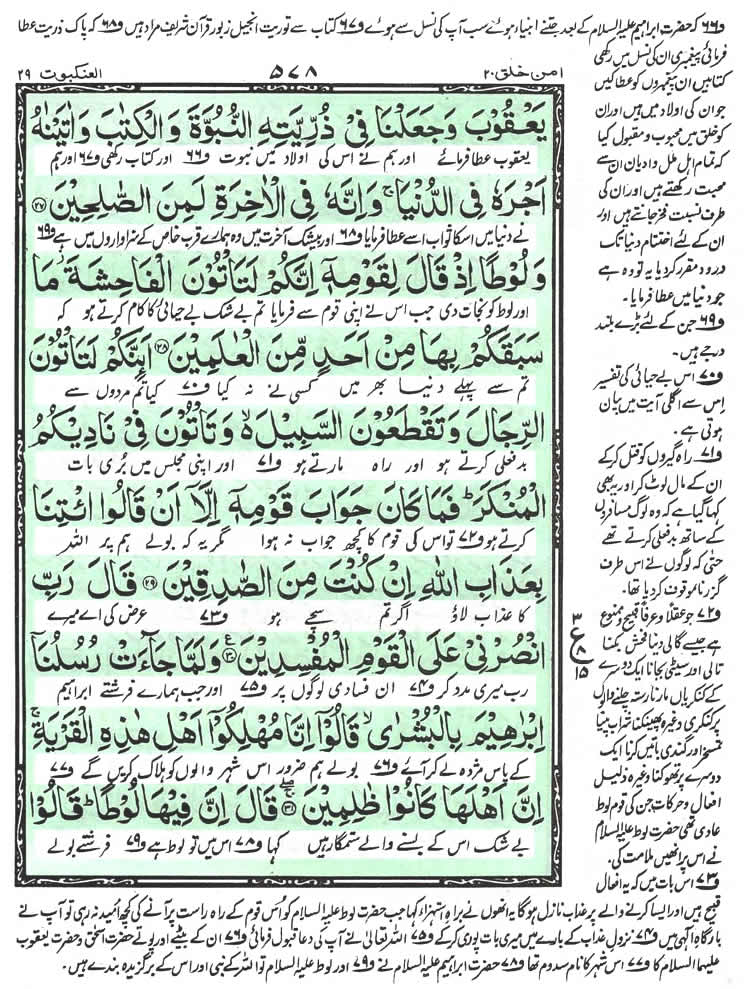 و۶۶ کہ حضرت ابراہیم علیہ السلام کے بعد جتنے انبیاء ہوئے سب آپ کی نسل سے ہوئے و۶۷ کتاب سے توریت انجیل زبور قرآن شریف مراد ہیں و۶۸ کہ پاک ذریت عطا
امن خلق ۲۰
۵۷۸
العنکبوت ۲۹
یَعْقُوْبَ وَ جَعَلْنَا فِیْ ذُرِّیَّتِهِ النُّبُوَّةَ وَ الْكِتٰبَ وَ اٰتَیْنٰهُ
یعقوب عطا فرمائے اور ہم نے اس کی اولاد میں نبوت و۶۶ اور کتاب رکھی و۶۷ اور ہم
اَجْرَهٗ فِی الدُّنْیَاۚ وَ اِنَّهٗ فِی الْاٰخِرَةِ لَمِنَ الصّٰلِحِیْنَ ۲۷
نے دنیا میں اسکا ثواب اسے عطا فرمایا و۶۸ اور بیشک آخرت میں وہ ہمارے قرب خاص کے سزاواروں میں ہے و۶۹
وَ لُوْطًا اِذْ قَالَ لِقَوْمِهٖۤ اِنَّكُمْ لَتَاْتُوْنَ الْفَاحِشَةَ٘ مَا
اور لوط کو نجات دی جب اس نے اپنی قوم سے فرمایا تم بے شک بے حیائی کا کام کرتے ہو کہ
سَبَقَكُمْ بِهَا مِنْ اَحَدٍ مِّنَ الْعٰلَمِیْنَ ۲۸ اَىٕنَّكُمْ لَتَاْتُوْنَ
تم سے پہلے دنیا بھر میں کسی نے نہ کیا و۷۰ کیا تم مردوں سے
الرِّجَالَ وَ تَقْطَعُوْنَ السَّبِیْلَ ۙ۬ وَ تَاْتُوْنَ فِیْ نَادِیْكُمُ
بدفعلی کرتے ہو اور راہ مارتے ہو و۷۱ اور اپنی مجلس میں بری بات
الْمُنْكَرَؕ فَمَا كَانَ جَوَابَ قَوْمِهٖۤ اِلَّاۤ اَنْ قَالُوا ائْتِنَا
کرتے ہو و۷۲ تو اس کی قوم کا کچھ جواب نہ ہوا مگر یہ کہ بولے ہم پر اللہ
بِعَذَابِ اللّٰهِ اِنْ كُنْتَ مِنَ الصّٰدِقِیْنَ ۲۹ قَالَ رَبِّ
کا عذاب لاؤ اگر تم سچے ہو و۷۳ عرض کی اے میرے
انْصُرْنِیْ عَلَى الْقَوْمِ الْمُفْسِدِیْنَ ۳۰ وَ لَمَّا جَآءَتْ رُسُلُنَاۤ
رب میری مدد کر و۷۴ ان فسادی لوگوں پر و۷۵ اور جب ہمارے فرشتے ابراہیم
اِبْرٰهِیْمَ بِالْبُشْرٰىۙ قَالُوْۤا اِنَّا مُهْلِكُوْۤا اَهْلِ هٰذِهِ الْقَرْیَةِۚ
کے پاس مژدہ لے کر آئے و۷۶ بولے ہم ضرور اس شہر والوں کو ہلاک کریں گے و۷۷
اِنَّ اَهْلَهَا كَانُوْا ظٰلِمِیْنَ ۳۱ قَالَ اِنَّ فِیْهَا لُوْطًاؕ قَالُوْا
بے شک اس کے بسنے والے ستمگار ہیں کہا و۷۸ اس میں تو لوط ہے و۷۹ فرشتے بولے
فرمائی پیغمبری ان کی نسل میں رکھی
کتابیں ان پیغمبروں کو عطا کیں
جو ان کی اولاد میں ہیں اور ان
کو خلق میں محبوب و مقبول کیا
کہ تمام اہل ملل و ادیان ان سے
محبت رکھتے ہیں اور ان کی
طرف نسبت فخر جانتے ہیں اور
ان کے لئے اختتام دنیا تک
درود مقرر کر دیا یہ تو وہ ہے
جو دنیا میں عطا فرمایا۔
و۶۹ جن کے لئے بڑے بلند
درجے ہیں۔
و۷۰ اس بے حیائی کی تفسیر
اس سے اگلی آیت میں بیان
ہوتی ہے۔
و۷۱ راہ گیروں کو قتل کر کے
ان کے مال لوٹ کر اور یہ بھی
کہا گیا ہے کہ وہ لوگ مسافروں
کے ساتھ بدفعلی کرتے تھے
حتی کہ لوگوں نے اس طرف
گزرنا موقوف کر دیا تھا۔
و۷۲ جو عقلاً و عرفاً قبیح و ممنوع
ہے جیسے گالی دینا فحش بکنا
تالی اور سیٹی بجانا ایک دوسرے
کے کنکریاں مارنا رستہ چلنے والوں
پر کنکری وغیرہ پھینکنا شراب پینا
تمسخر اور گندی باتیں کرنا ایک
دوسرے پر تھوکنا وغیرہ ذلیل
افعال و حرکات جن کی قوم لوط
عادی تھی حضرت لوط علیہ السلام
نے اس پر انھیں ملامت کی۔
و۷۳ اس بات میں کہ یہ افعال
۳
ع
۸
۱۵
قبیح ہیں اور ایسا کرنے والے پر عذاب نازل ہوگا یہ انھوں نے براہ استہزاء کہا جب حضرت لوط علیہ السلام کو اس قوم کے راہ راست پر آنے کی کچھ امید نہ رہی تو آپ نے
بارگاہ الٰہی میں و۷۴ نزول عذاب کے بارے میں میری بات پوری کر کے و۷۵ اللہ تعالیٰ نے آپ کی دعا قبول فرمائی و۷۶ ان کے بیٹے اور پوتے حضرت اسحٰق و حضرت یعقوب
علیہما السلام کا و۷۷ اس شہر کا نام سدوم تھا و۷۸ حضرت ابراہیم علیہ السلام نے و۷۹ اور لوط علیہ السلام تو اللہ کے نبی اور اس کے برگزیدہ بندے ہیں۔